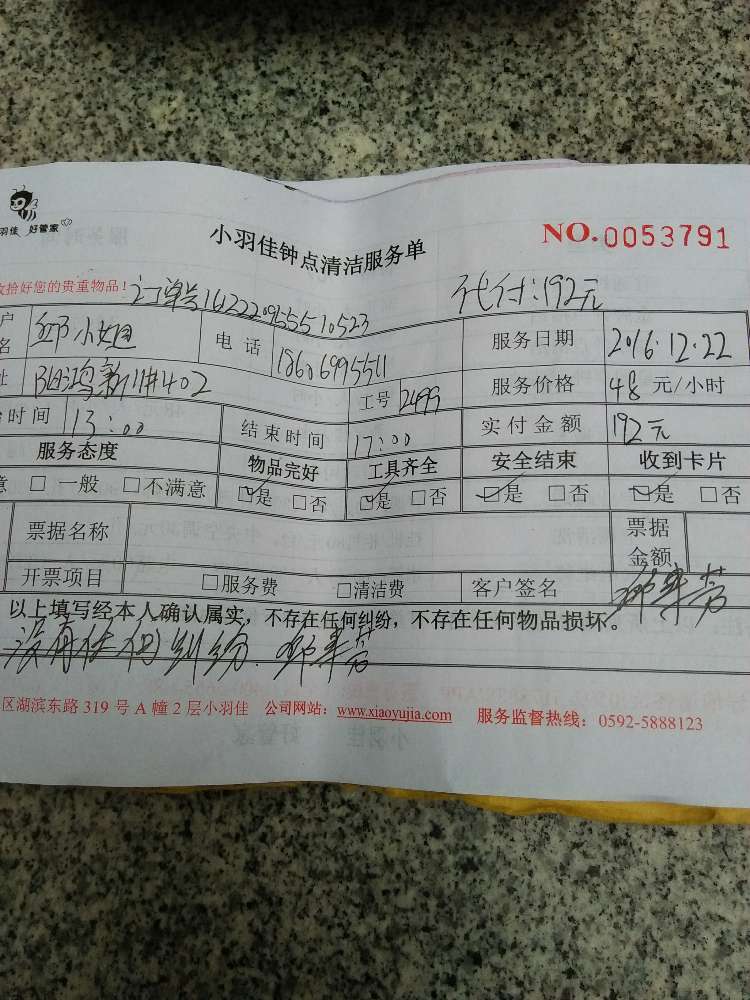 羽佳 好管家
小羽佳钟点清洁服务单
NO.0053791
收拾好您的贵重物品!
订单号16122209555510523
代付:192元
户名 小姐 电话 18606995511 服务日期 2016.12.22
址 鸿 402 工号 2499 服务价格 48元/小时
时间 13:00 结束时间 17:00 实付金额 192元
服务态度 物品完好 工具齐全 安全结束 收到卡片
意 □一般 □不满意 ☑是 □否 ☑是 □否 ☑是 □否 ☑是 □否
票据名称 票据金额
开票项目 □服务费 □清洁费 客户签名
以上填写经本人确认属实,不存在任何纠纷,不存在任何物品损坏。
没有任何纠纷.
区湖滨东路 319 号 A 幢 2 层小羽佳 公司网站:www.xiaoyujia.com 服务监督热线:0592-5888123